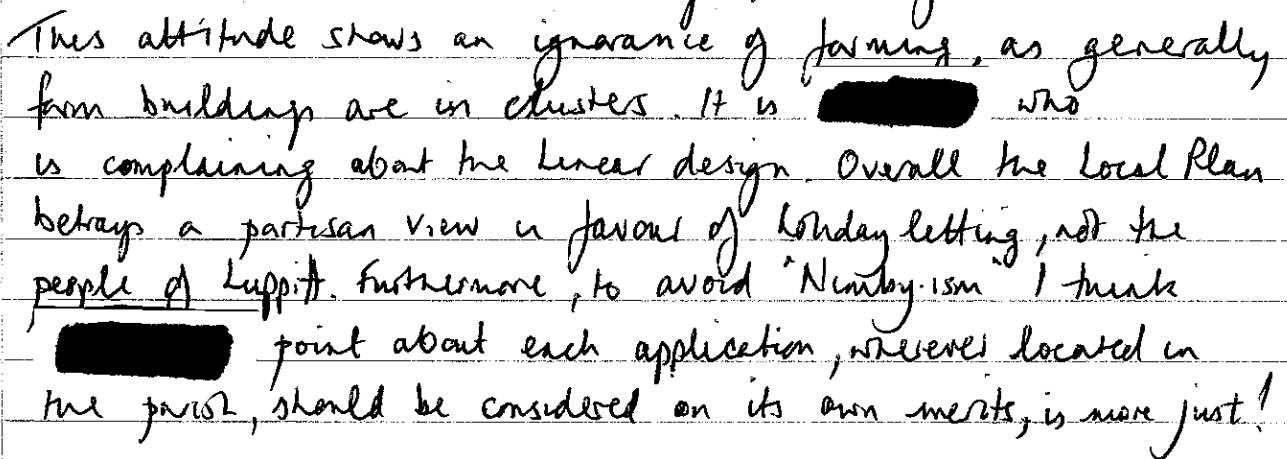 This attitude shows an ignorance of farming, as generally
farm buildings are in clusters. It is who
is complaining about the Linear design. Overall the Local Plan
betrays a partisan view in favour of holiday letting, not the
people of Luppitt. Furthermore, to avoid "Nimby-ism" I think
point about each application, wherever located in
the parish, should be considered on its own merits, is more just!